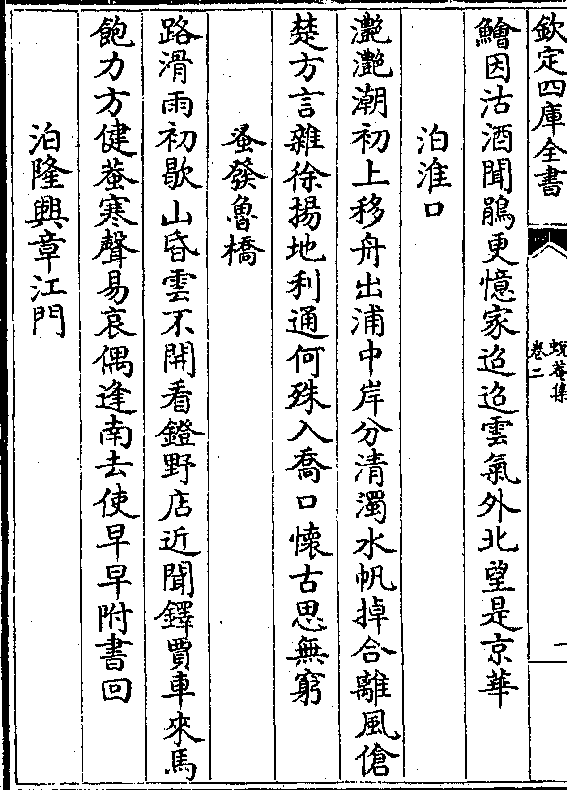 欽定四庫全書
蛻菴集
卷二
鱠因沽酒聞鵑更憶家迢迢雲氣外北望是京華
泊淮口
灧灧潮初上移舟出浦中岸分清濁水帆掉合離風傖
楚方言雜徐揚地利通何殊入喬口懷古思無窮
蚤發魯橋
路滑雨初歇山昏雲不開看鐙野店近聞鐸賈車來馬
飽力方健蛬寒聲易哀偶逢南去使早早附書回
泊隆興章江門